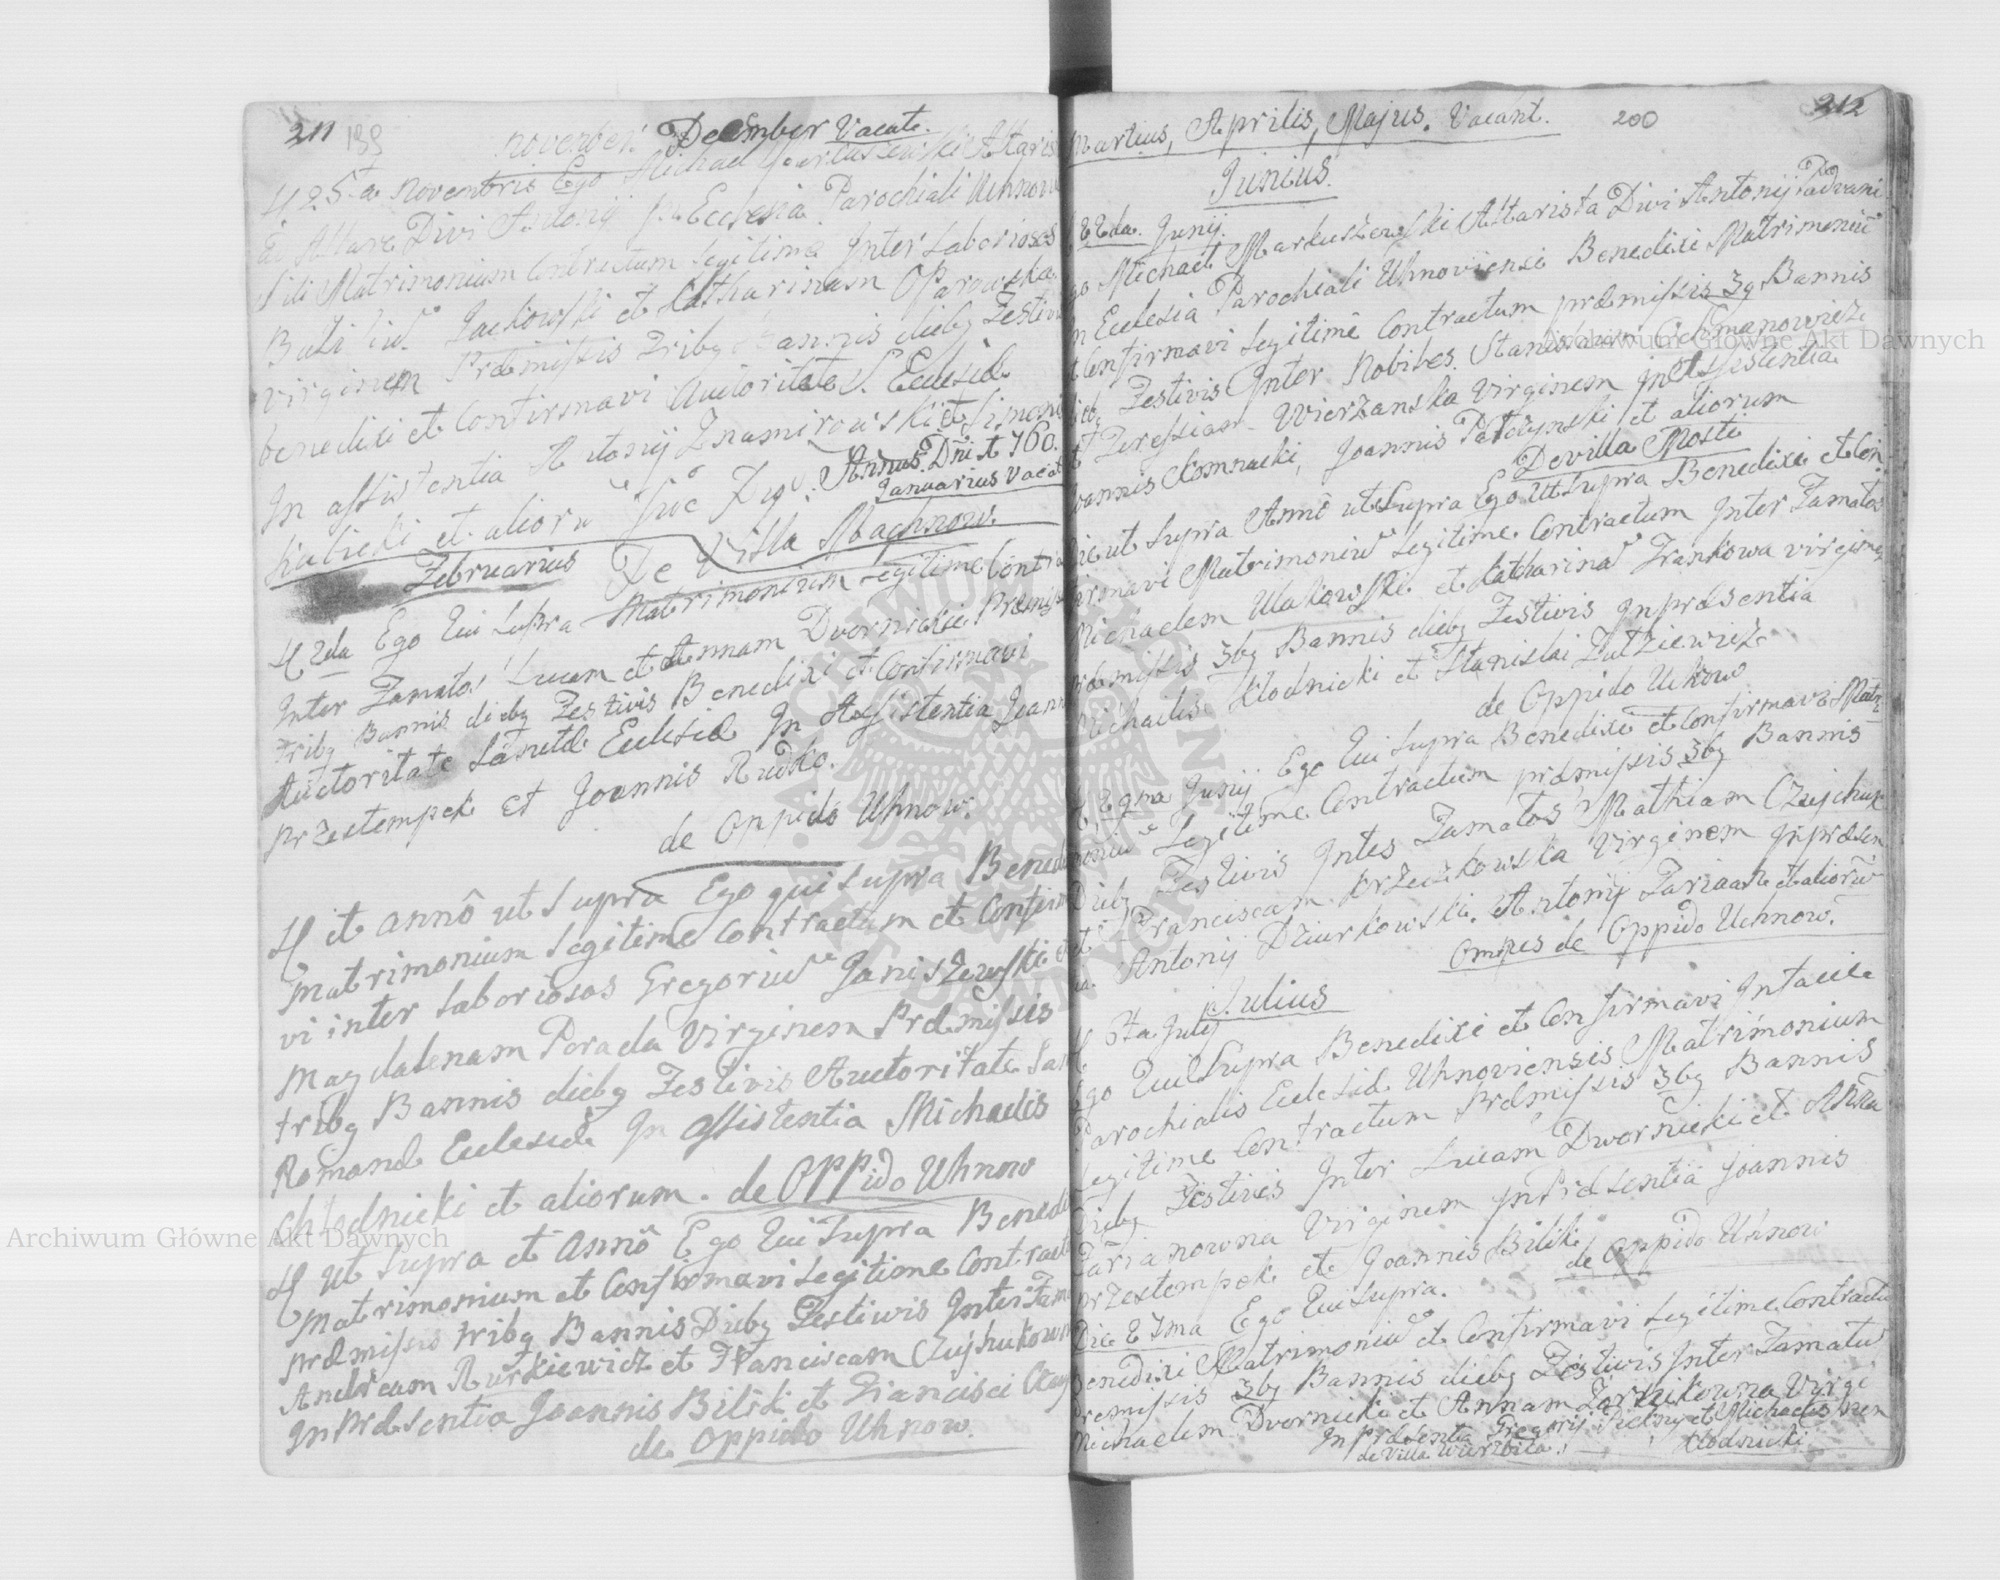 211 199
november December Vacat.
D 25ta Novembris Ego Michael Markuszewski Altaris
ta Altare Divi Antonij in Ecclesia Parochiali Uhnovi
Matrimonium Contractum Legitime Inter Laboriosos
Jackowski et Catharinam
virginem Præmissis tribq Bannis diebq Festivi
benedixi et Confirmavi Auctoritate S. Ecclesiæ
In assistentia Antonij Znamirowski et Simonis
et aliorū
Annus Dni 1760.
Januarius Vacat
Februarius De Villa Machnow.
D 2da Ego Qui Supra Matrimonium Legitime Contra
Inter Famatos Lucam et Annam Dvornickie Præmis
tribq Bannis diebq Festivis Benedixi et Confirmavi
Auctoritate Sanctæ Ecclesiæ In Assistentia Joann
Przestempek et Joannis Rudko.
de Oppido Uhnow.
D et annô ut Supra Ego qui Supra Bened
Matrimonium Legitime Contractum et Confirm
vi inter Laboriosos Gregoriū Janiszewski et
Magdalenam Porada Virginem Præmissis
tribq Bannis diebq Festivis Auctoritate San
Romanæ Ecclesiæ In Assistentia Michaelis
Chłodnicki et aliorum. de Oppido Uhnow
D ut Supra et Annô Ego Qui Supra Bened
Matrimonium et Confirmavi Legitime Contract
præmissis tribq Bannis Diebq Festivis Inter Fam
Andream Rurkiewicz et Franciscam Czujhukown
In Præsentia Joannis Bilik et Francisci
de Oppido Uhnow.
200 212
Martius, Aprilis, Majus. Vacant.
Junius.
22da. Junij.
go Michael Markuszewski Altarista Divi Antonij Padvani
n Ecclesia Parochiali Uhnoviensi Benedixi Matrimoniū
t Confirmavi Legitimê Contractum præmissis 3q Bannis
diebq Festivis Inter Nobiles Stanislaum
et Teressiam Wierzanska Virginem In Assistentia
oannis Komnacki, Joannis et aliorum
De villa Mosti
Die ut Supra Annô ut Supra Ego ut Supra Benedixi et Con
firmavi Matrimoniū Legitime Contractum Inter Famatos
Michaelem Ulakowski et Catharinā Frankowa virginem
præmissis 3bq Bannis diebq Festivis In præsentia
Michaelis Kłodnicki et Stanislai
de Oppido Uhnow
D 29na Junij Ego Qui Supra Benedixi et Confirmavi Matr
moniū Legitime Contractum præmissis 3bq Bannis
Diebq Festivis Inter Famatos Mathiam Czujchuk
et Franciscam Krzeczkowska Virginem In præsen
a Antonij Dziurkowski. Antonij et aliorū
Omnes de Oppido Uhnow.
Julius
D 6ta Julij
Ego Qui Supra Benedixi et Confirmavi In facie
Parochialis Ecclesiæ Uhnoviensis Matrimonium
Legitime Contractum Præmissis 3bq Bannis
Diebq Festivis Inter Lucam Dwornicki et Annā
Farianowna Virginem In Præsentia Joannis
Przestempek et Joannis Bilik
de Oppido Uhnow
Die 27ma Ego Qui Supra.
Benedixi Matrimoniū et Confirmavi Legitime Contractū
Præmissis 3bq Bannis diebq Festivis Inter Famatū
Michaelem Dvornicki et Annam Virgi
nem In Præsentia Gregorij et Michaelis
de Villa Wierzbica. Kłodnicki
Archiwum Główne Akt Dawnych
Archiwum Główne Akt Dawnych